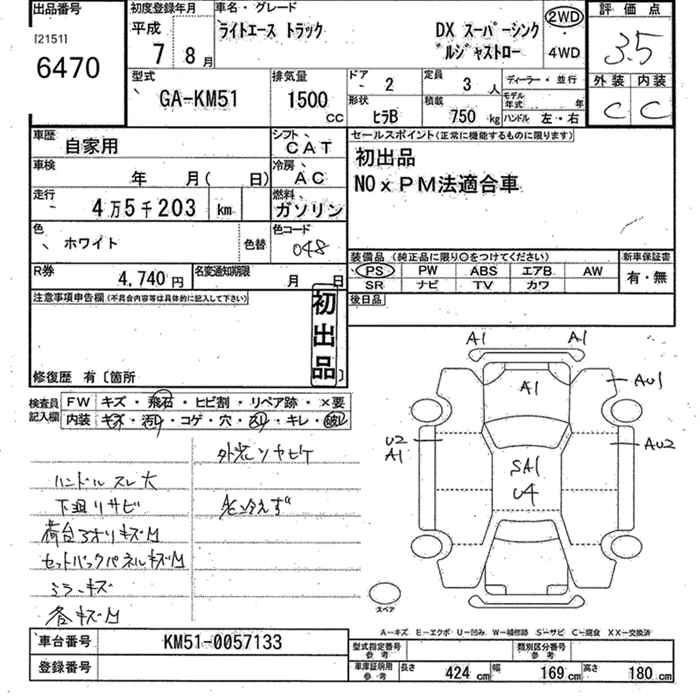 出品番号
[2151]
6470
初度登録年月
平成
7 8月
車名・グレード
ライトエース トラック
DX スーパーシング
ルジャストロー
2WD
4WD
評価点
3.5
外装 内装
C C
型式
GA-KM51
排気量
1500
cc
ドア
2
定員
3 人
形状
ヒラB
積載
750 kg
ディーラー・並行
モデル年式 年
ハンドル 左・右
車歴
自家用
シフト
CAT
車検
年 月( 日)
冷房
AC
走行
4万5千203 km
燃料
ガソリン
色
ホワイト
色替
色コード
048
R券
4,740円
名変通知期限
月 日
セールスポイント(正常に機能するものに限ります)
初出品
NOxPM法適合車
装備品 (純正品に限り〇をつけてください)
新車保証書
PS PW ABS エアB AW
SR ナビ TV カワ
有・無
後日品
注意事項申告欄(不具合内容等は具体的に記入して下さい)
初出品
修復歴 有〔箇所 〕
検査員記入欄
FW キズ・飛石・ヒビ割・リペア跡・×要
内装 キズ・汚れ・コゲ・穴・
・キレ・破レ
ハンドル スレ大
下廻リサビ
荷台アオリキズM
セットバックパネルキズM
ミラーキズ
各キズM
A1 A1
A1
AU1
U2
A1
AU2
SA1
U4
スペア
A-キズ E-エクボ U-凹み W-補修跡 S-サビ C-腐食 XX-交換済
車台番号
KM51-0057133
登録番号
型式指定番号
参考
類別区分番号
参考
車庫証明用
参考
長さ 424 cm 幅 169 cm 高さ 180 cm